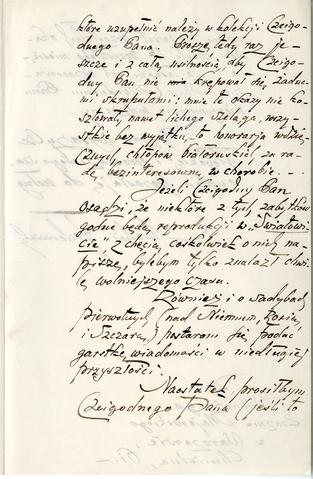 które uzupełnić należy w kolekcji Czcigo-
dnego Pana. Proszę tedy raz je-
szcze i z całą usilnością, by Czcigo-
dny Pan nie krępował się żadne-
mi skrupułami: mnie te okazy nie ko-
sztowały nawet lichego szeląga, wszy-
stkie bez wyjątku, to honorarja wdzię-
cznych chłopów białoruskich, za ra-
dę, bezinteresowną, w chorobie. ...
Jeżeli Czcigodny Pan
osądzi, że niektóre z tych zabytków
godne będą reprodukcji w „Światowi-
cie" z chęcią cośkolwiek o nich na-
piszę, bylebym tylko znalazł chwi-
lę wolniejszego czasu.
Również i o sadybach
pierwotnych (nad Niemnem, Rosią,
i Szczarą,) postaram się podać
garstkę wiadomości w niedługiej
przyszłości.
Naostatek prosiłbym
Czcigodnego Pana (jeśli to